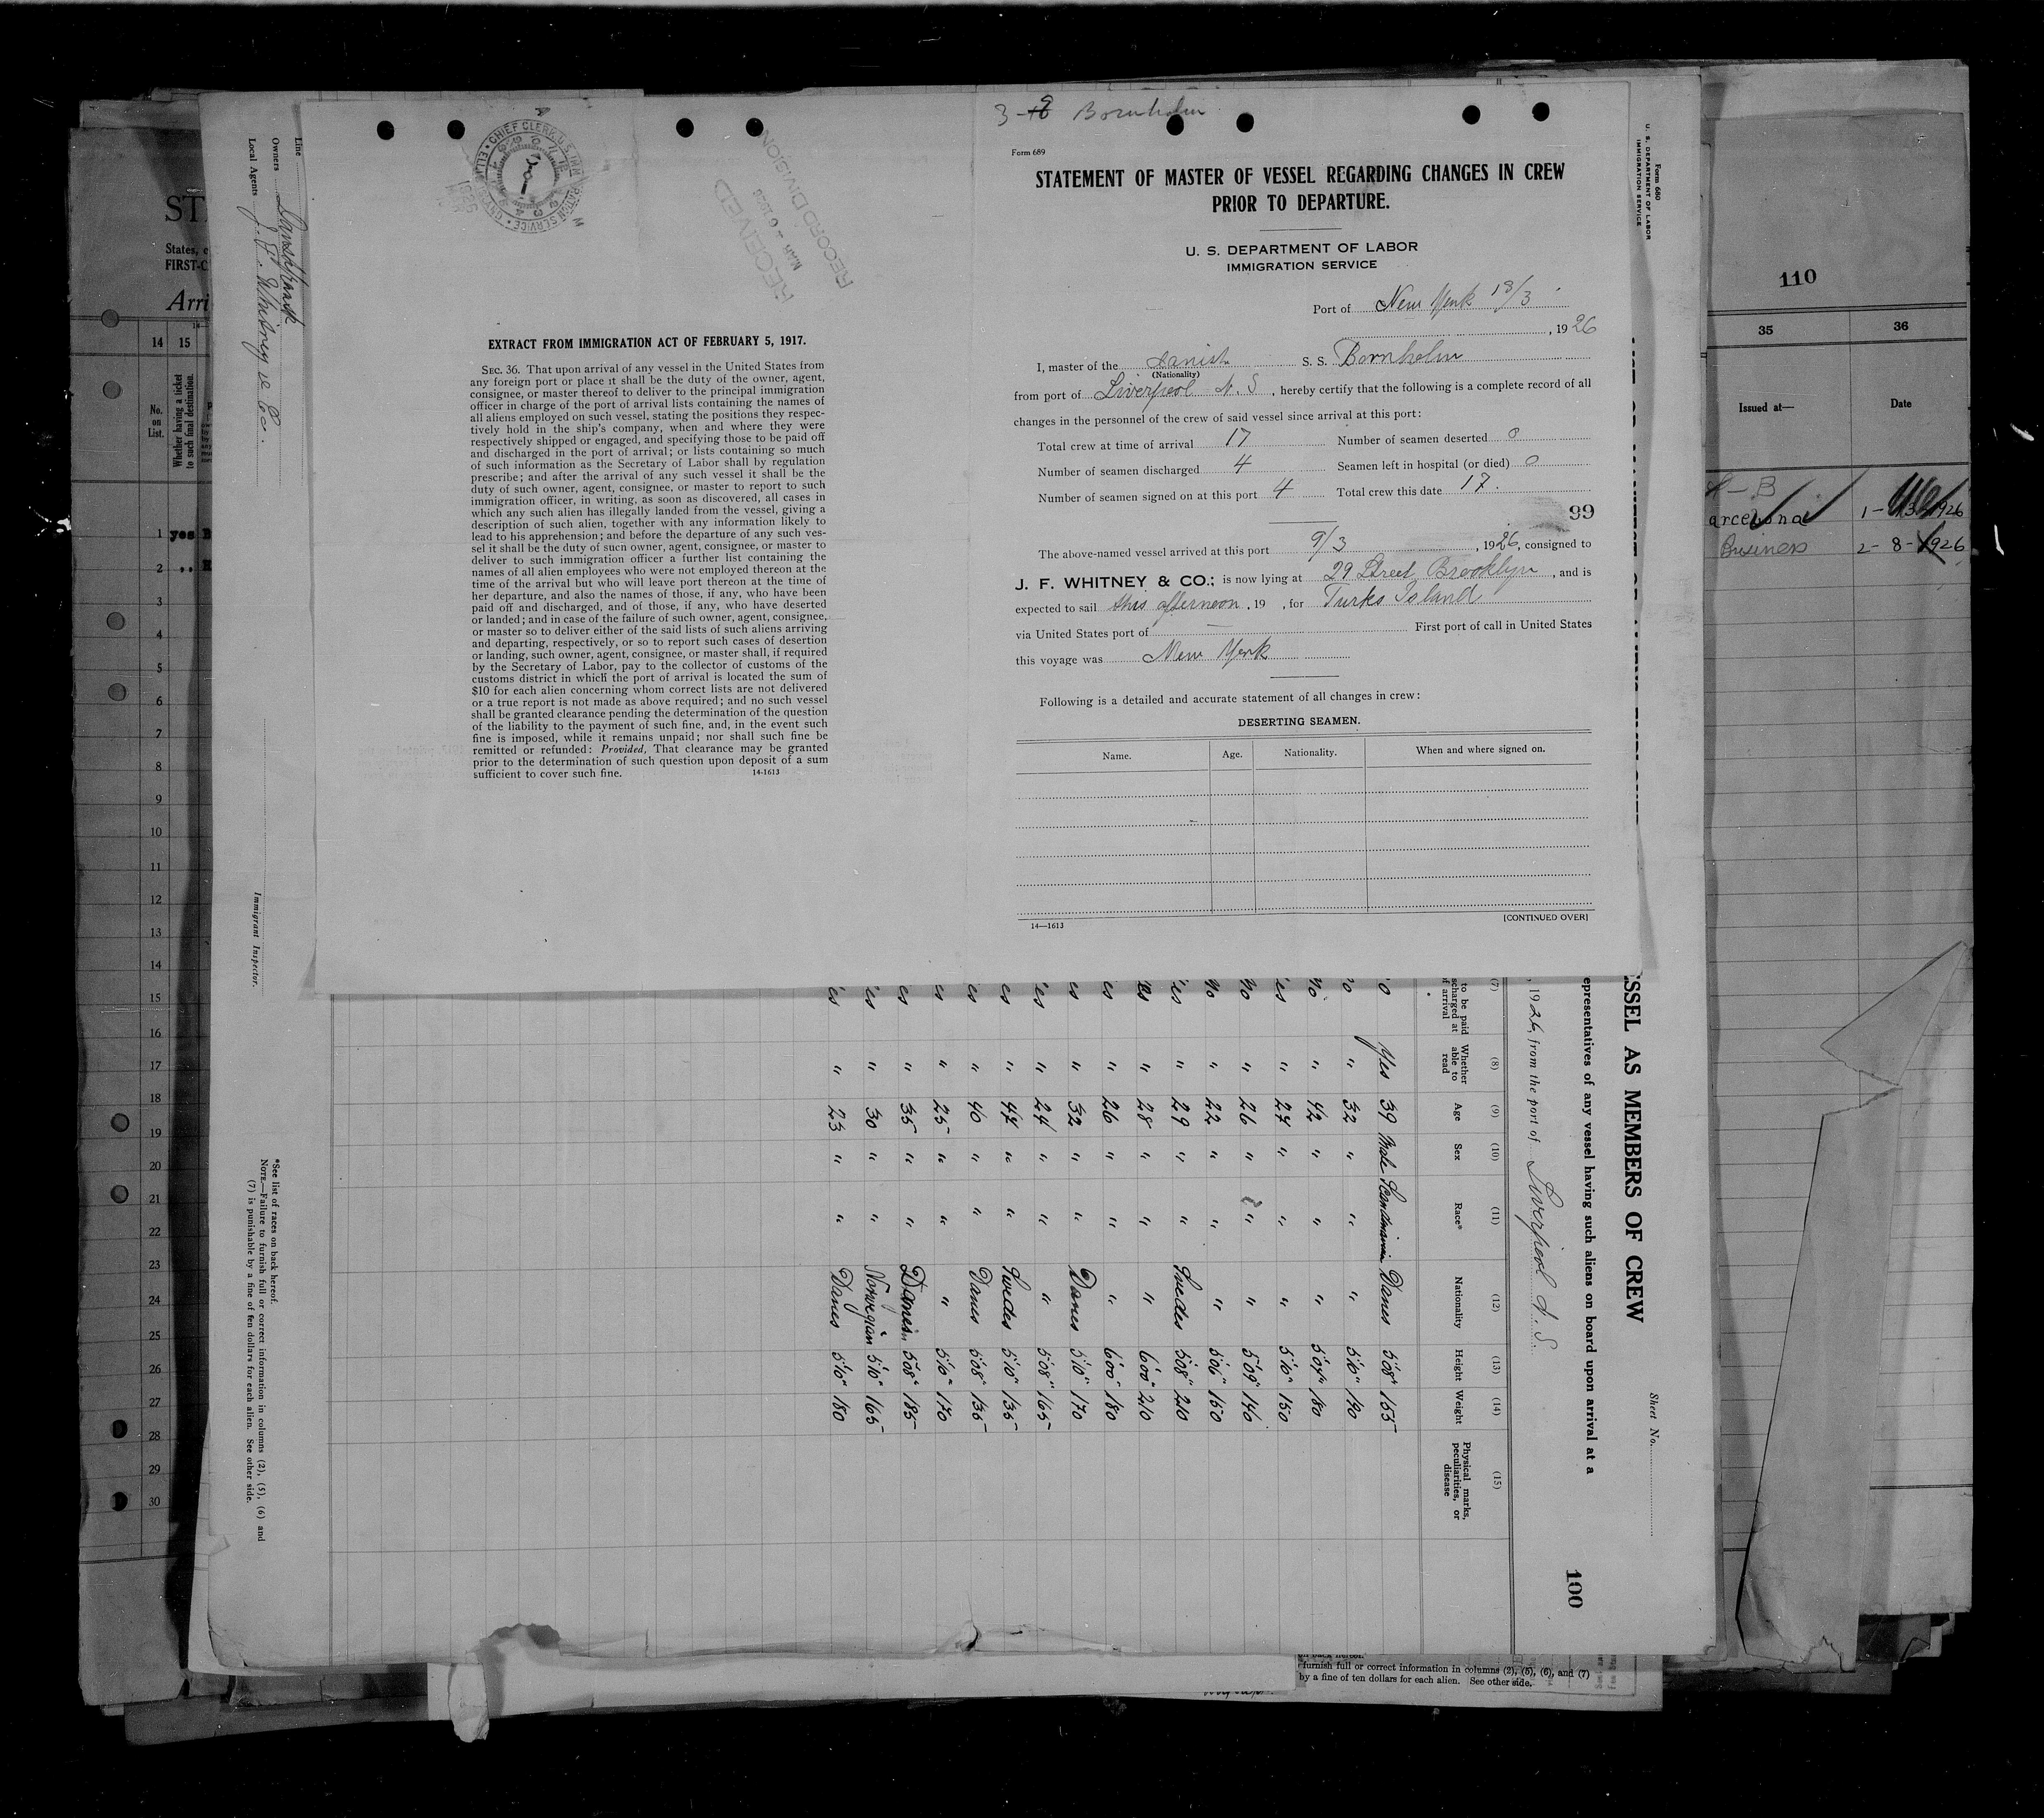 3-9 Bornholm
Form 689
STATEMENT OF MASTER OF VESSEL REGARDING CHANGES IN CREW
PRIOR TO DEPARTURE.
U. S. DEPARTMENT OF LABOR
IMMIGRATION SERVICE
Port of New York 13/3
, 1926
I, master of the Danish S. S. Bornholm
(Nationality)
from port of Liverpool N. S , hereby certify that the following is a complete record of all
changes in the personnel of the crew of said vessel since arrival at this port:
Total crew at time of arrival 17 Number of seamen deserted 0
Number of seamen discharged 4 Seamen left in hospital (or died) 0
Number of seamen signed on at this port 4 Total crew this date 17.
99
The above-named vessel arrived at this port 9/3 , 1926, consigned to
J. F. WHITNEY & CO.; is now lying at 29 Street Brooklyn , and is
expected to sail this afternoon , 19 , for Turks Island
via United States port of — First port of call in United States
this voyage was New York
Following is a detailed and accurate statement of all changes in crew:
DESERTING SEAMEN.
Name. Age. Nationality. When and where signed on.
14—1613 [CONTINUED OVER]
CHIEF CLERK U.S. IMMIGRATION SERVICE
RECEIVED
MAR 16 1926
RECORD DIVISION
EXTRACT FROM IMMIGRATION ACT OF FEBRUARY 5, 1917.
SEC. 36. That upon arrival of any vessel in the United States from
any foreign port or place it shall be the duty of the owner, agent,
consignee, or master thereof to deliver to the principal immigration
officer in charge of the port of arrival lists containing the names of
all aliens employed on such vessel, stating the positions they respec-
tively hold in the ship's company, when and where they were
respectively shipped or engaged, and specifying those to be paid off
and discharged in the port of arrival; or lists containing so much
of such information as the Secretary of Labor shall by regulation
prescribe; and after the arrival of any such vessel it shall be the
duty of such owner, agent, consignee, or master to report to such
immigration officer, in writing, as soon as discovered, all cases in
which any such alien has illegally landed from the vessel, giving a
description of such alien, together with any information likely to
lead to his apprehension; and before the departure of any such ves-
sel it shall be the duty of such owner, agent, consignee, or master to
deliver to such immigration officer a further list containing the
names of all alien employees who were not employed thereon at the
time of the arrival but who will leave port thereon at the time of
her departure, and also the names of those, if any, who have been
paid off and discharged, and of those, if any, who have deserted
or landed; and in case of the failure of such owner, agent, consignee,
or master so to deliver either of the said lists of such aliens arriving
and departing, respectively, or so to report such cases of desertion
or landing, such owner, agent, consignee, or master shall, if required
by the Secretary of Labor, pay to the collector of customs of the
customs district in which the port of arrival is located the sum of
$10 for each alien concerning whom correct lists are not delivered
or a true report is not made as above required; and no such vessel
shall be granted clearance pending the determination of the question
of the liability to the payment of such fine, and, in the event such
fine is imposed, while it remains unpaid; nor shall such fine be
remitted or refunded: Provided, That clearance may be granted
prior to the determination of such question upon deposit of a sum
sufficient to cover such fine. 14-1613
Form 680
U. S. DEPARTMENT OF LABOR
IMMIGRATION SERVICE
Sheet No.
SSEL AS MEMBERS OF CREW
100
epresentatives of any vessel having such aliens on board upon arrival at a
, 1926, from the port of Liverpool N. S.
(7) (8) (9) (10) (11) (12) (13) (14) (15)
to be paid
scharged at
f arrival
Whether
able to
read
Age
Sex
Race*
Nationality
Height
Weight
Physical marks,
peculiarities, or
disease
o Yes 39 Male Scandinavian Danes 5'08" 155
o " 32 " " " 5'10" 190
No " 42 " " " 5'07" 180
es " 27 " " " 5'10" 150
No " 26 " " " 5'09" 140
No " 22 " " " 5'06" 150
es " 29 " " Swedes 5'08" 210
es " 28 " " " 6'00" 210
es " 26 " " " 6'00" 180
es " 32 " " Danes 5'10" 170
es " 24 " " " 5'08" 165
es " 47 " " Swedes 5'10" 135
es " 40 " " Danes 5'08" 135
es " 25 " " " 5'10" 170
es " 35 " " Danes 5'08" 185
es " 30 " " Norwegian 5'10" 165
es " 23 " " Danes 5'10" 180
Line
Owners
Local Agents J. F. Whitney & Co.
Immigrant Inspector.
*See list of races on back hereof.
NOTE.—Failure to furnish full or correct information in columns (2), (5), (6) and
(7) is punishable by a fine of ten dollars for each alien. See other side.
ST
States, c
FIRST-C
Arri
14 15
No.
on
List.
Whether having a ticket
to such final destination.
1 yes
2
3
4
5
6
7
8
9
10
11
12
13
14
15
16
17
18
19
20
21
22
23
24
25
26
27
28
29
30
110
35 36
Issued at— Date
arcelona
Business 2-8-1926
furnish full or correct information in columns (2), (5), (6), and (7)
by a fine of ten dollars for each alien. See other side.